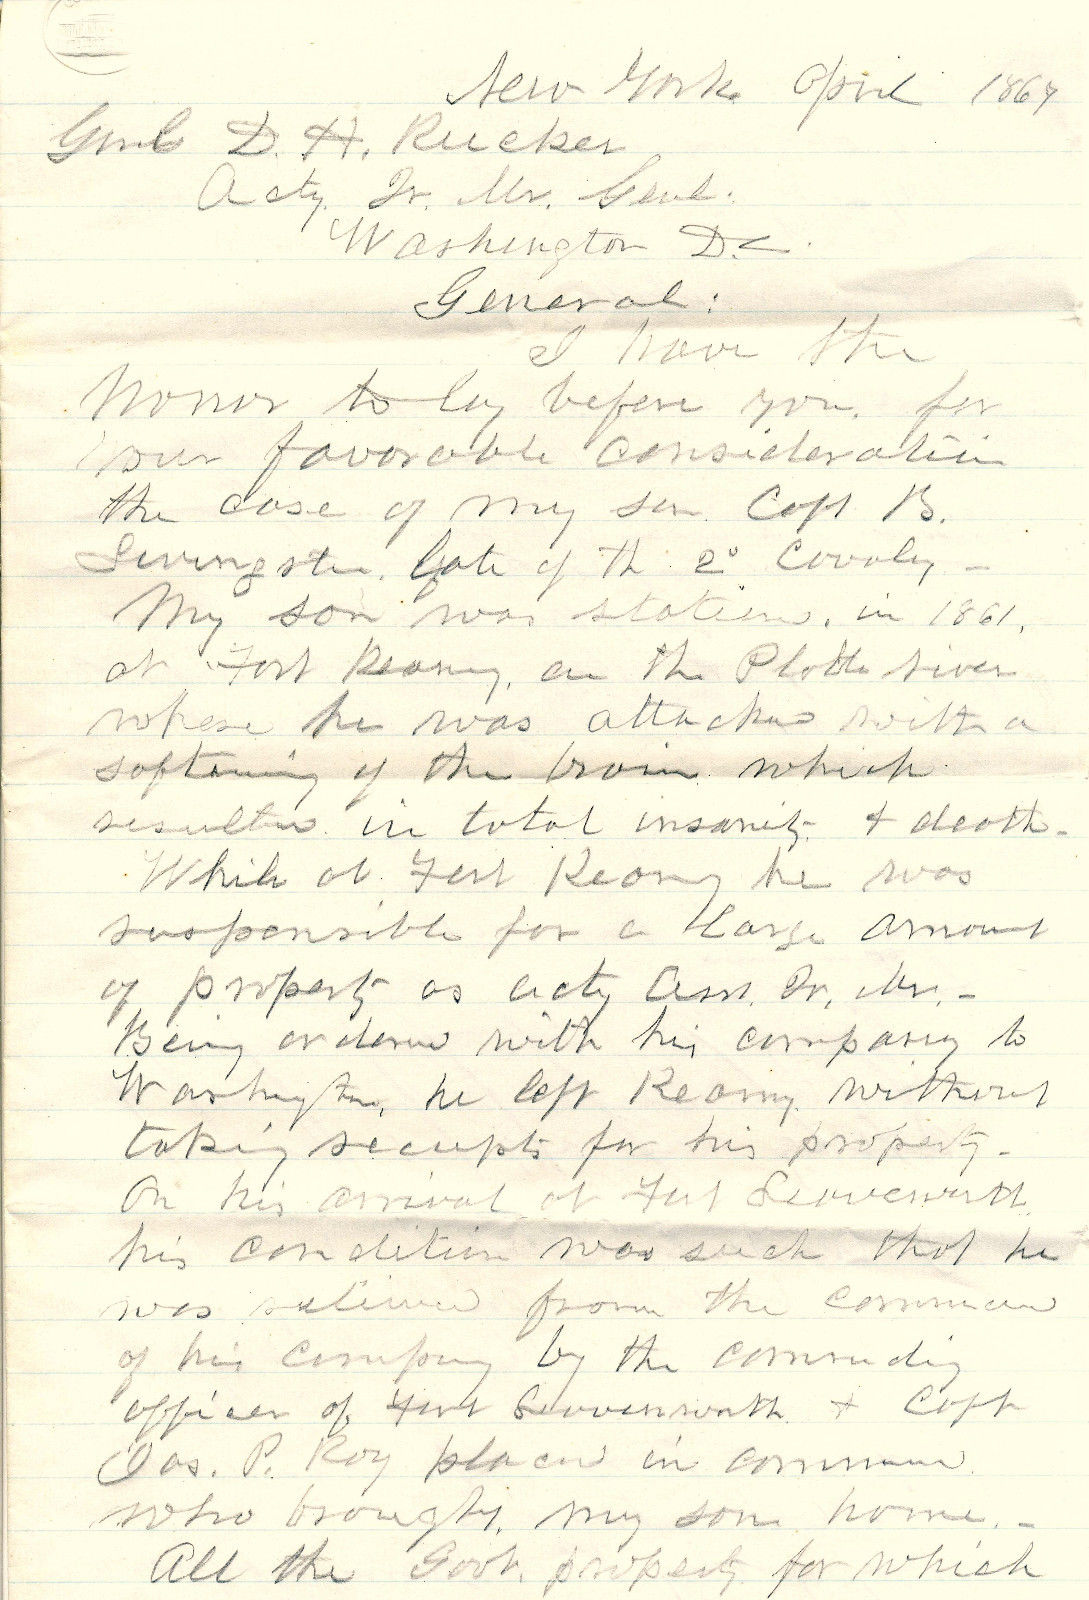 New York April 1867
Genl D. H. Rucker
Acty. Qr. Mr. Genl.
Washington D.C.
General:
I have the
honor to lay before you, for
your favorable consideration
the case of my son Capt B.
Livingston, late of the 2d Cavalry –
My son was stationed, in 1861,
at Fort Kearny, on the Platte river
where he was attacked with a
softening of the brain which
resulted in total insanity & death –
While at Fort Kearny he was
responsible for a large amount
of property as acty Asst. Qr. Mr. –
Being ordered with his company to
Washington, he left Kearny without
taking receipts for his property –
On his arrival at Fort Leavenworth
his condition was such that he
was relieved from the command
of his company by the commanding
officer of Fort Leavenworth & Capt
Jas. P. Roy placed in command
who brought, my son home. –
All the Govt. property for which